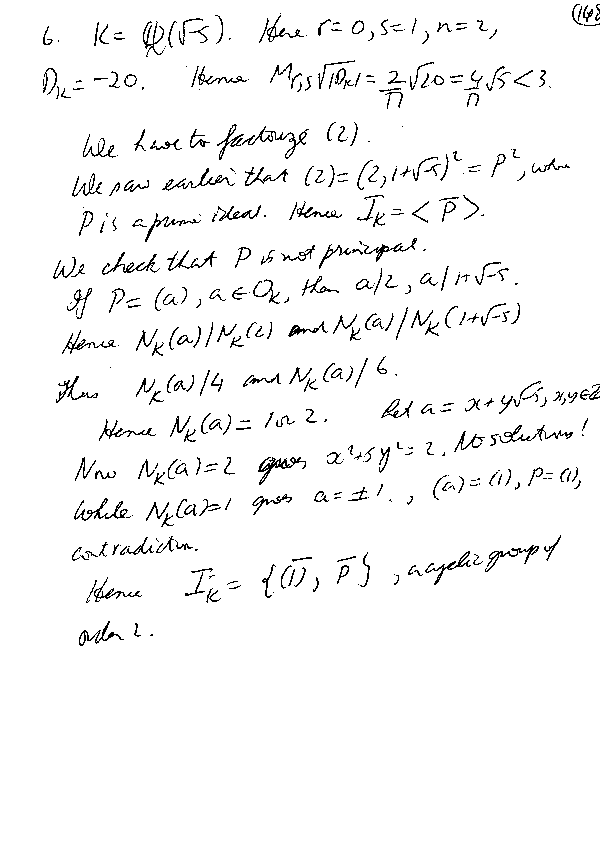 148
6. K = Q(√-5). Here r=0, s=1, n=2,
D_K = -20. Hence M_{r,s}√|D_K| = 2/π √20 = 4/π √5 < 3.
We have to factorize (2).
We saw earlier that (2) = (2, 1+√-5)² = P², where
P is a prime ideal. Hence I̅_K = < P̅ >.
We check that P is not principal.
If P = (a), a ∈ O_K, then a/2, a/1+√-5.
Hence N_K(a)/N_K(2) and N_K(a)/N_K(1+√-5)
Thus N_K(a)/4 and N_K(a)/6.
Hence N_K(a) = 1 or 2. Let a = x+y√-5, x,y∈Z
Now N_K(a)=2 gives x²+5y²=2. No solutions!
While N_K(a)=1 gives a=±1, (a)=(1), P=(1),
contradiction.
Hence I̅_K = { (1)̅, P̅ }, a cyclic group of
order 2.